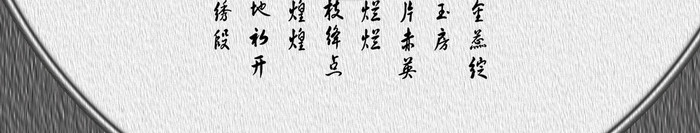 金蕊绽
玉房
片赤英
烂烂
枝绛点
煌煌
地初开
绣段